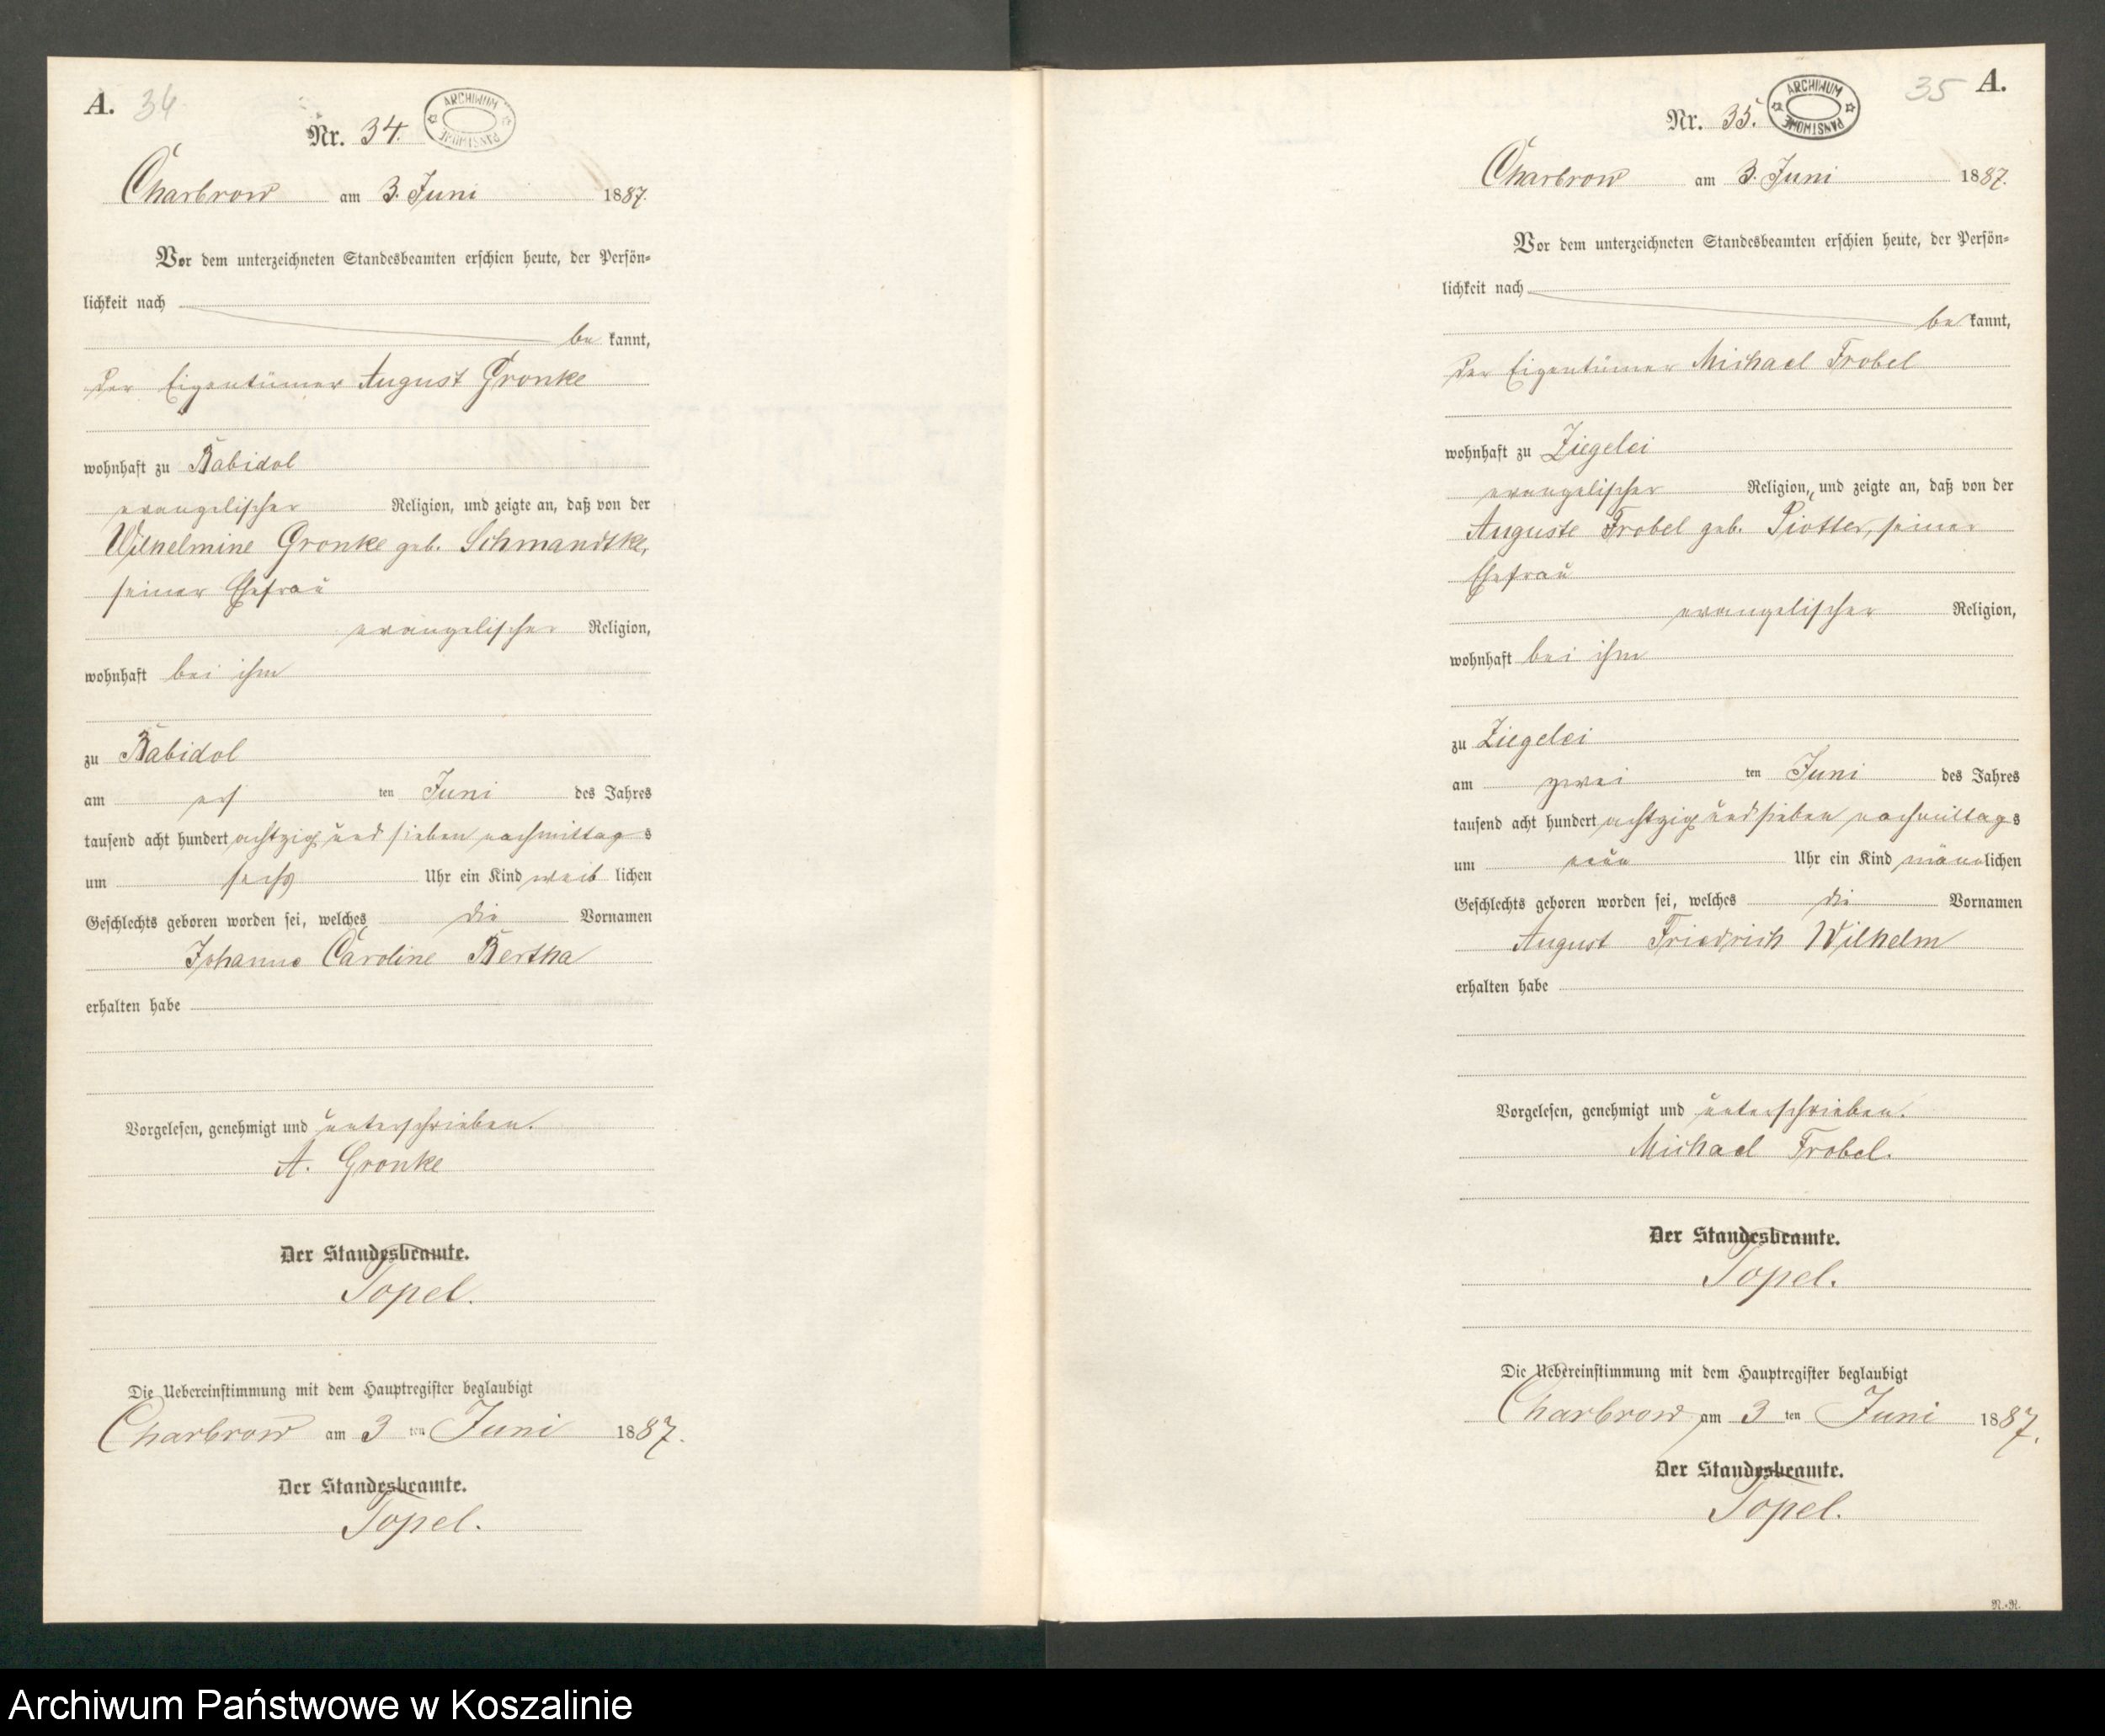 A. 34
Nr. 34.
ARCHIWUM PAŃSTWOWE
Charbrow am 3. Juni 1887.
Vor dem unterzeichneten Standesbeamten erschien heute, der Persön-
lichkeit nach
be kannt,
der Eigentümer August Gronke
wohnhaft zu Babidol
evangelischer Religion, und zeigte an, daß von der
Wilhelmine Gronke geb. Schmandtke,
seiner Ehefrau
evangelischer Religion,
wohnhaft bei ihm
zu Babidol
am ers ten Juni des Jahres
tausend acht hundert achtzig und sieben nachmittag s
um sechs Uhr ein Kind weib lichen
Geschlechts geboren worden sei, welches die Vornamen
Johanne Caroline Bertha
erhalten habe
Vorgelesen, genehmigt und unterschrieben.
A. Gronke
Der Standesbeamte.
Topel.
Die Uebereinstimmung mit dem Hauptregister beglaubigt
Charbrow am 3 ten Juni 1887.
Der Standesbeamte.
Topel.
35 A.
Nr. 35.
ARCHIWUM PAŃSTWOWE
Charbrow am 3. Juni 1887.
Vor dem unterzeichneten Standesbeamten erschien heute, der Persön-
lichkeit nach
be kannt,
der Eigentümer Michael Frobel
wohnhaft zu Ziegelei
evangelischer Religion, und zeigte an, daß von der
Auguste Frobel geb. Piotter, seiner
Ehefrau
evangelischer Religion,
wohnhaft bei ihm
zu Ziegelei
am zwei ten Juni des Jahres
tausend acht hundert achtzig und sieben nachmittag s
um neun Uhr ein Kind männ lichen
Geschlechts geboren worden sei, welches die Vornamen
August Friedrich Wilhelm
erhalten habe
Vorgelesen, genehmigt und unterschrieben.
Michael Frobel.
Der Standesbeamte.
Topel.
Die Uebereinstimmung mit dem Hauptregister beglaubigt
Charbrow am 3 ten Juni 1887.
Der Standesbeamte.
Topel.
Archiwum Państwowe w Koszalinie